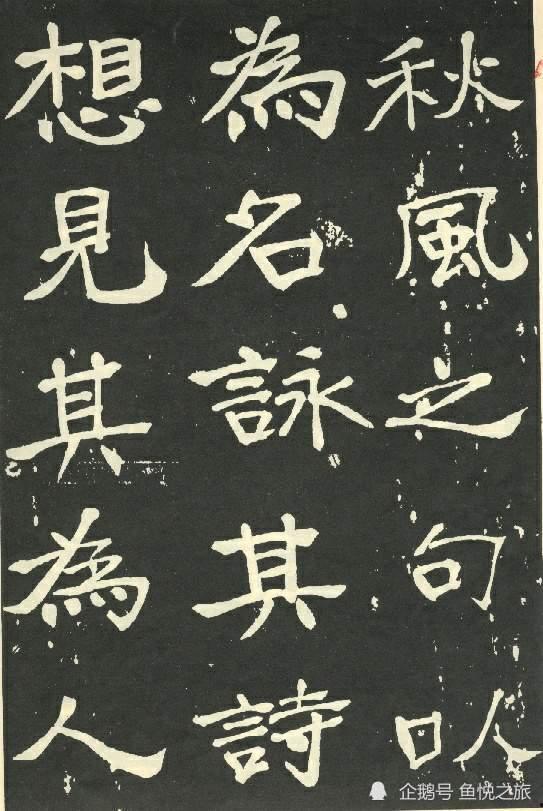 秋風之句㕥
為名詠其詩
想見其為人
企鹅号 鱼悦之旅